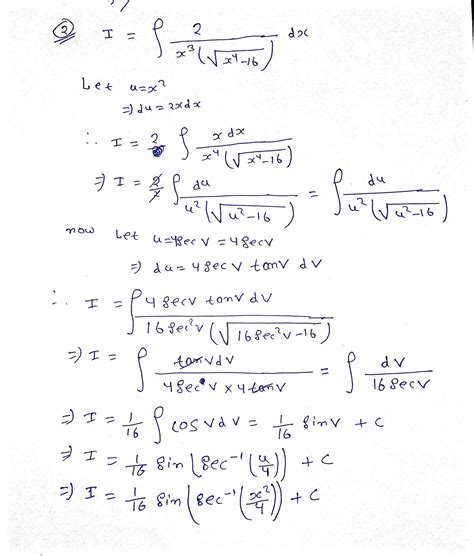 ② I = ∫ 2 / (x³(√(x⁴-16))) dx
Let u=x²
⇒ du = 2xdx
∴ I = 2 ∫ x dx / (x⁴(√(x⁴-16)))
⇒ I = 2/2 ∫ du / (u²(√(u²-16))) = ∫ du / (u²(√(u²-16)))
now Let u=4secv = 4secv
⇒ du = 4 secv tanv dv
∴ I = ∫ 4 secv tanv dv / (16 sec²v (√(16sec²v-16)))
⇒ I = ∫ tanv dv / (4secv × 4 tanv) = ∫ dv / (16 secv)
⇒ I = 1/16 ∫ cosv dv = 1/16 sinv + c
⇒ I = 1/16 sin(sec⁻¹(u/4)) + c
⇒ I = 1/16 sin(sec⁻¹(x²/4)) + c